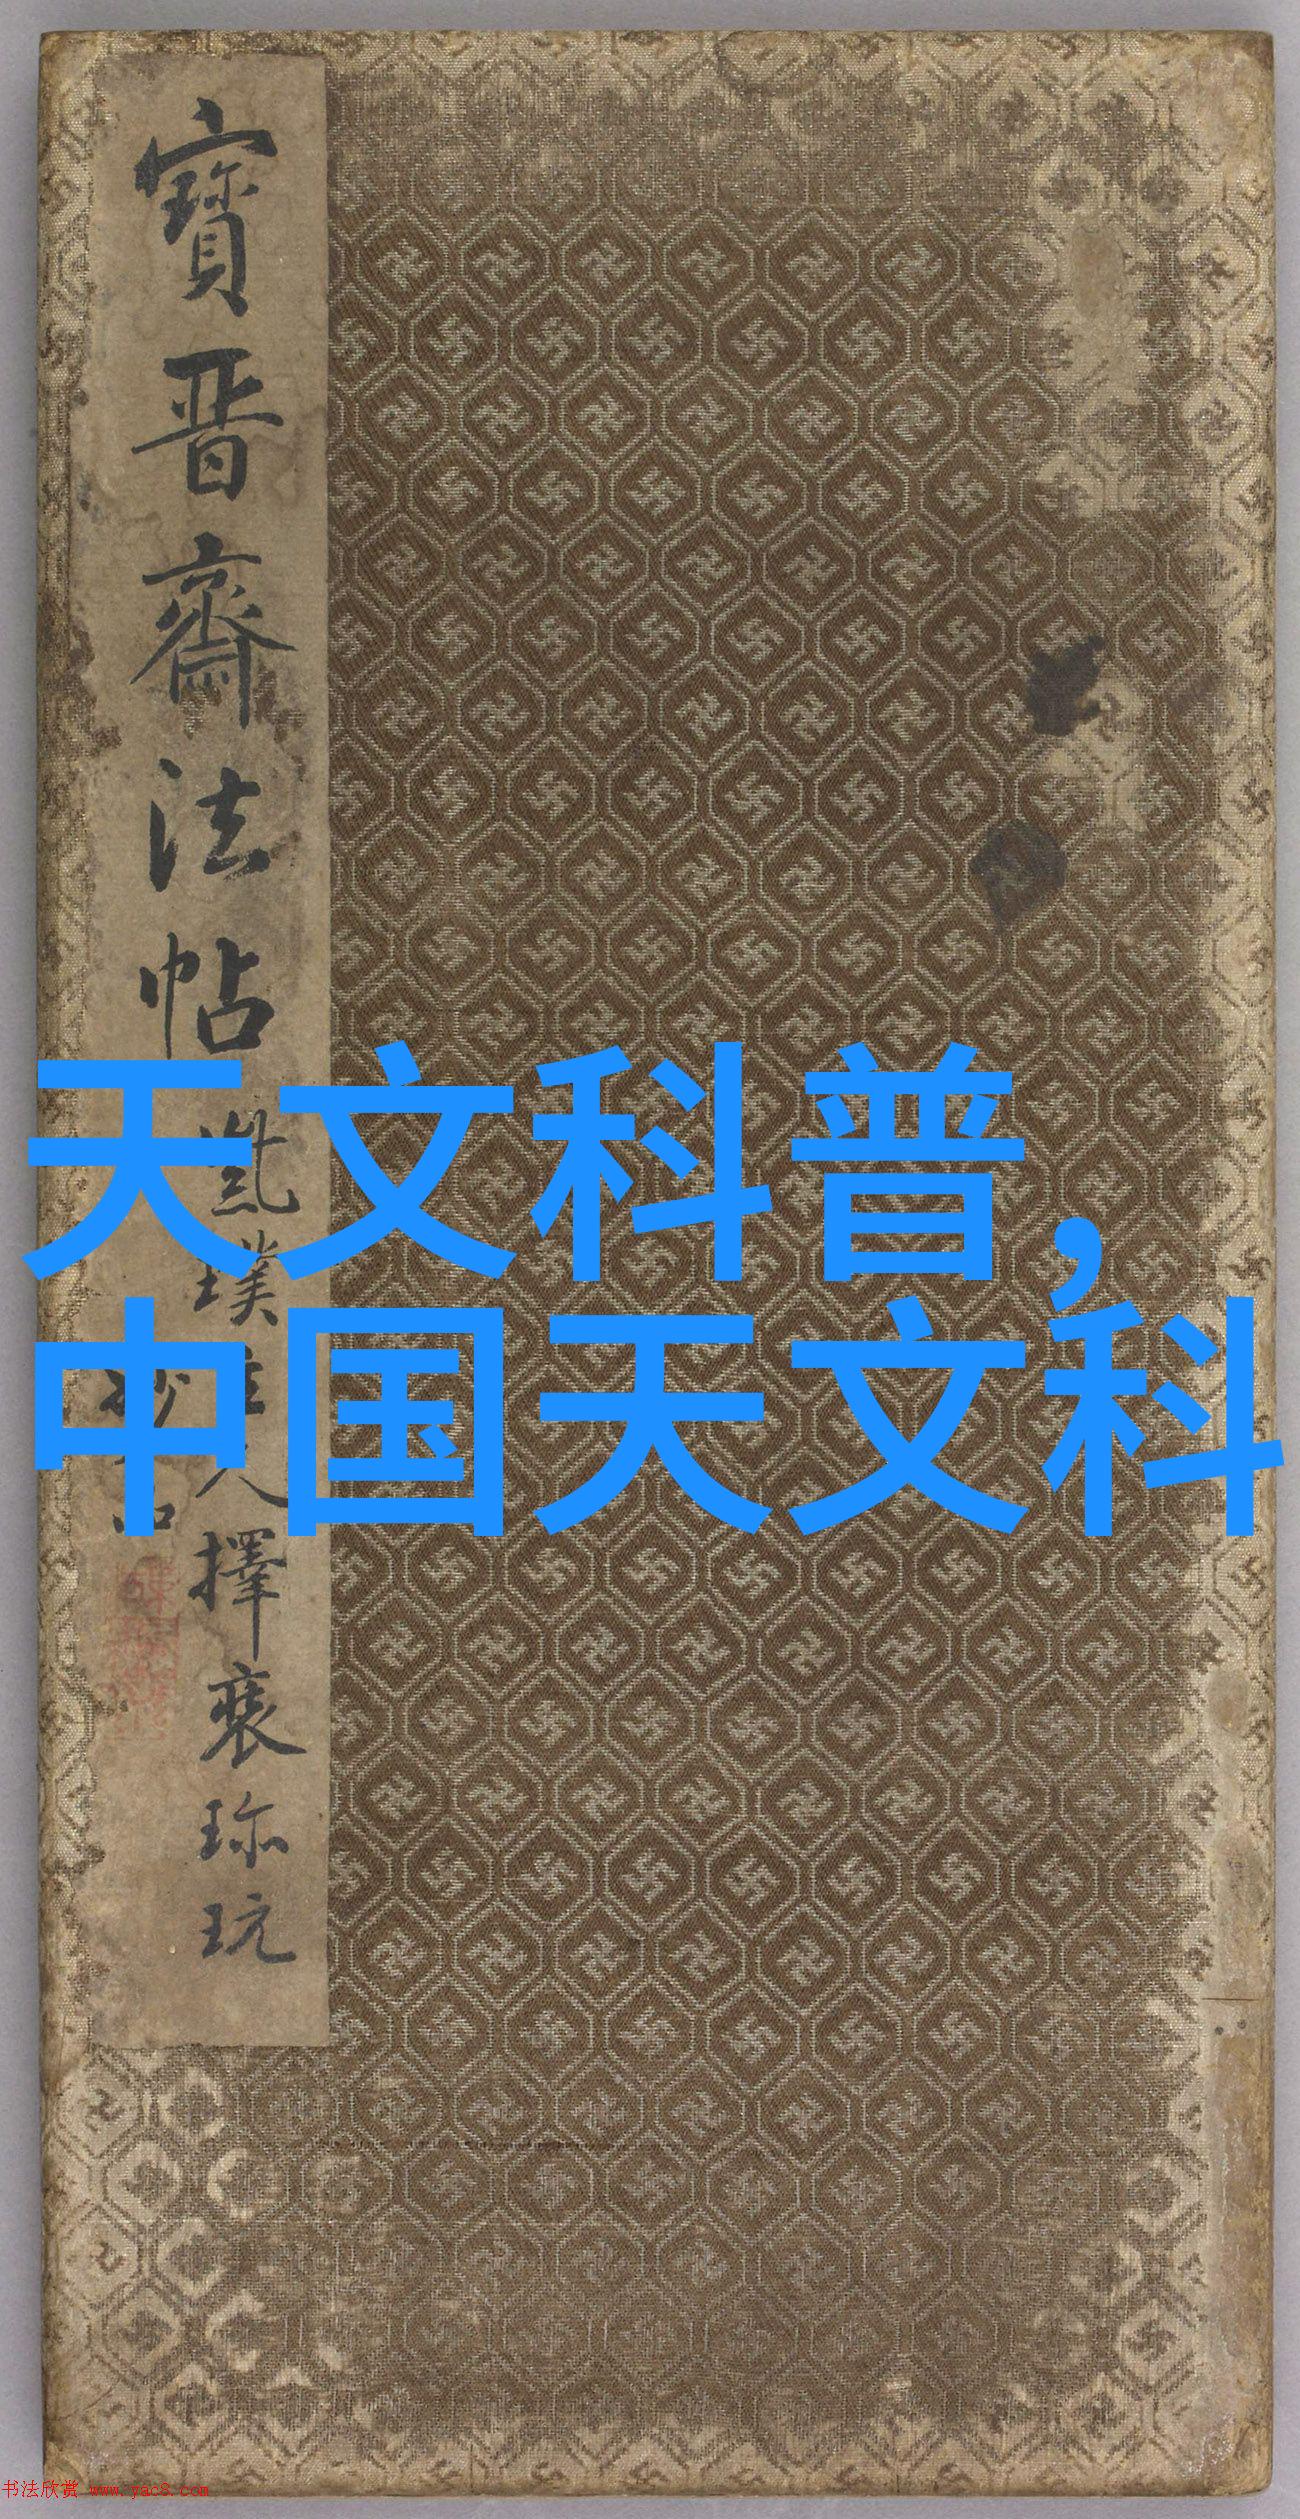 寶晋齋法帖
擇裒珎玩
天文科普,
中国天文科
书法欣赏 www.yac8.com